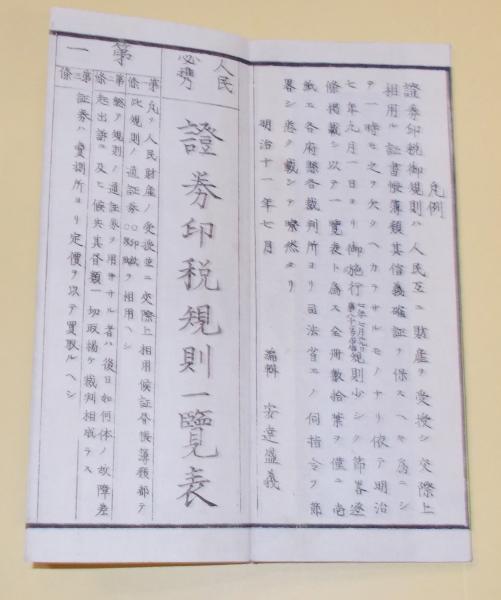 凡例
證券印税御規則ハ人民互ニ財産ヲ受授シ交際上
相用ル証書帳簿類其信義確証ヲ保スヘキ為ニシ
テ一時モ之ヲ欠クヘカラサルモノナリ依テ明治
七年九月一日ヨリ御施行規則少シク節畧逐
條掲載シ以テ一覧表ト為ス全冊数拾葉ヲ僅ニ壱
紙ニ各府縣各裁判所ヨリ司法省エノ伺指令ヲ節
畧シ悉ク載シテ瞭然タリ
明治十一年七月
編輯 安達盛義
人民
必携
證券印税規則一覧表
第一
第一條 凡ソ人民財産ノ受授並ニ交際上相用候証券帳簿類都テ
此規則ノ通証券印紙界紙ヲ相用ヘシ
第二條 総テ規則ノ通証券ヲ用ヰサル者ハ後日如何体ノ故障差
起出訴ニ及ヒ候共其書類一切取揚ケ裁判相成ラス
第三條 証券ハ賣捌所ヨリ定價ヲ以テ買取ルヘシ